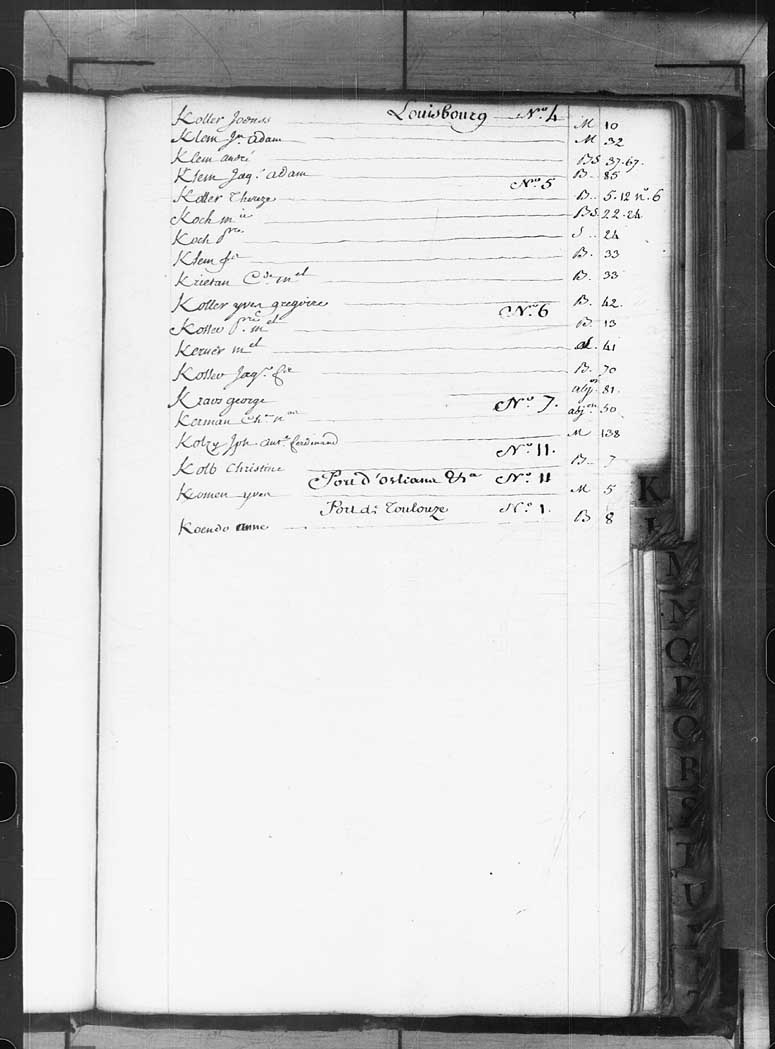 Louisbourg N.o 4
Koller Joonas M 10
Klem Jn adam M 32
Klem andré BS 37.67.
Klem Jaq.s adam B. 85
N.o 5
Koller Thereze B. 5.12 n.o 6
Koch m.ie BS. 22.24.
Koch p.re S 24
Klem B. 33
Krietan C. m.el B. 33
Koller yves gregoire B. 42.
N.o 6
Koller p.re m.el B. 13
Kerner m.el 41
Koller Jaq.s B. 70
Kraus george abj.on 81.
N.o 7.
Kerman Ch. abj.on 50
Kolzy Jph ant.e ferdinand M 138
N.o 11.
Kolb Christine B. 7
Port d'orleans &.a N.o 11
Komen yves M 5
Port de Toulouze N.o 1.
Koendo anne B 8
K
L
M
N
O
P
Q
R
S
T
U